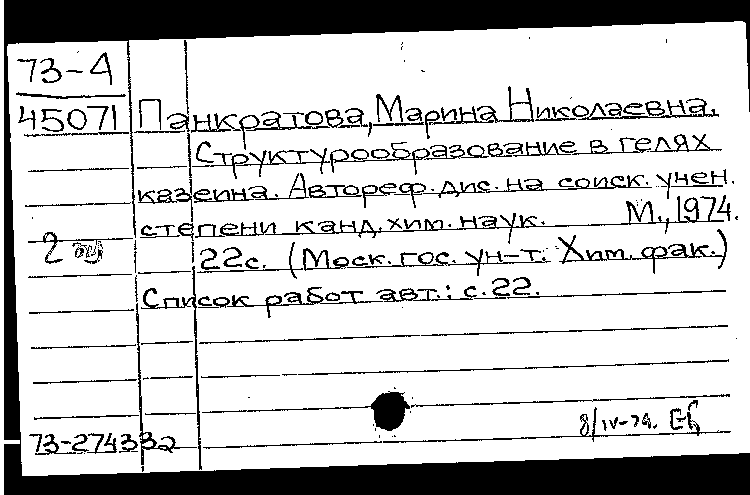 73-4
45071
Панкратова, Марина Николаевна.
Структурообразование в гелях
казеина. Автореф. дис. на соиск. учен.
степени канд. хим. наук. М., 1974.
22с. (Моск. гос. ун-т. Хим. фак.)
Список работ авт.: с.22.
2
8/IV-74.
73-274332